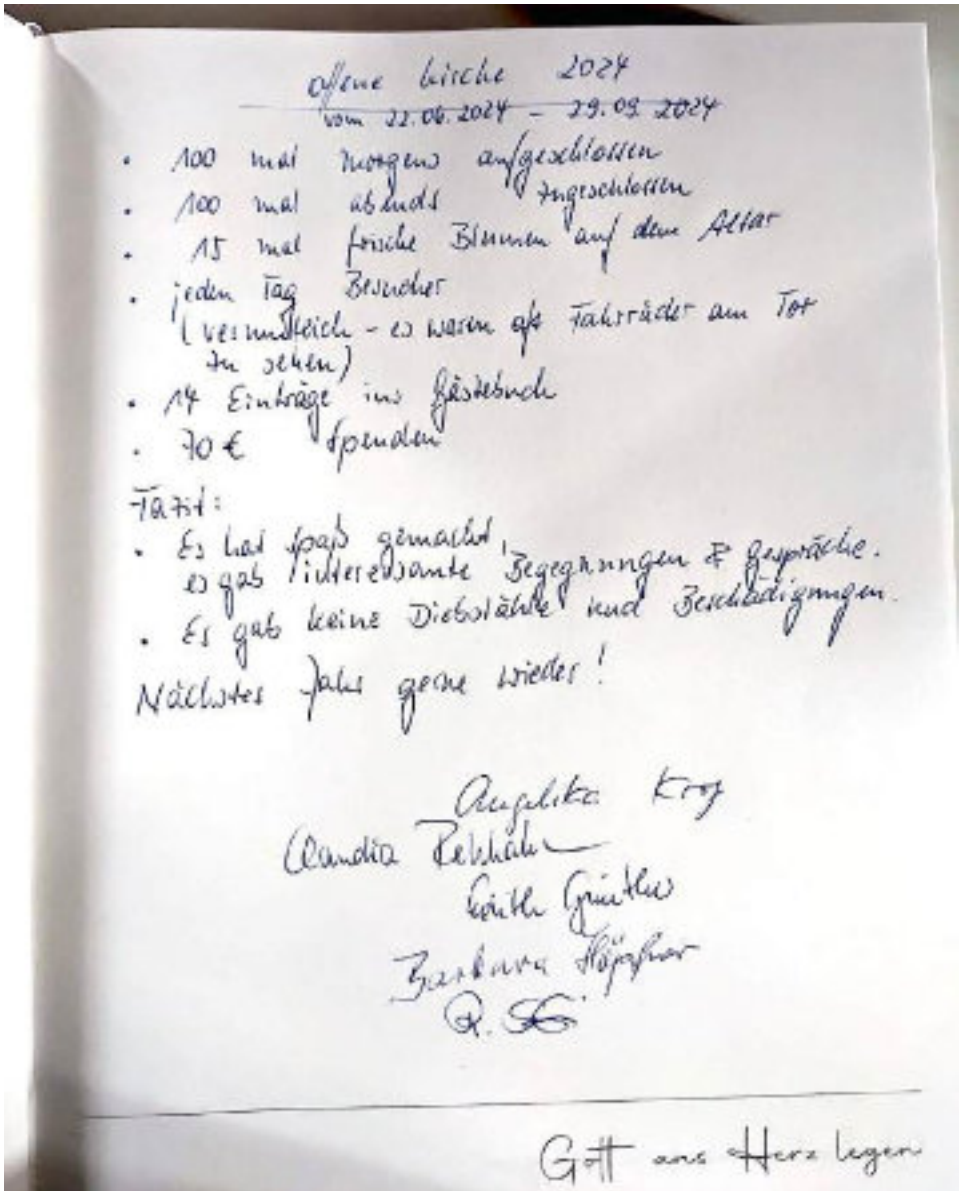 offene Kirche 2024
vom 22.06.2024 - 29.09.2024
• 100 mal morgens aufgeschlossen
• 100 mal abends zugeschlossen
• 15 mal frische Blumen auf dem Altar
• jeden Tag Besucher
(vermutlich - es waren oft Fahrräder am Tor
zu sehen)
• 14 Einträge ins Gästebuch
• 70 € Spenden
Fazit:
• Es hat Spaß gemacht,
es gab interessante Begegnungen & Gespräche.
• Es gab keine Diebstähle und Beschädigungen.
Nächstes Jahr gerne wieder!
Angelika
Claudia Rebhahn
Günther
Barbara Höpfner
Gott ans Herz legen